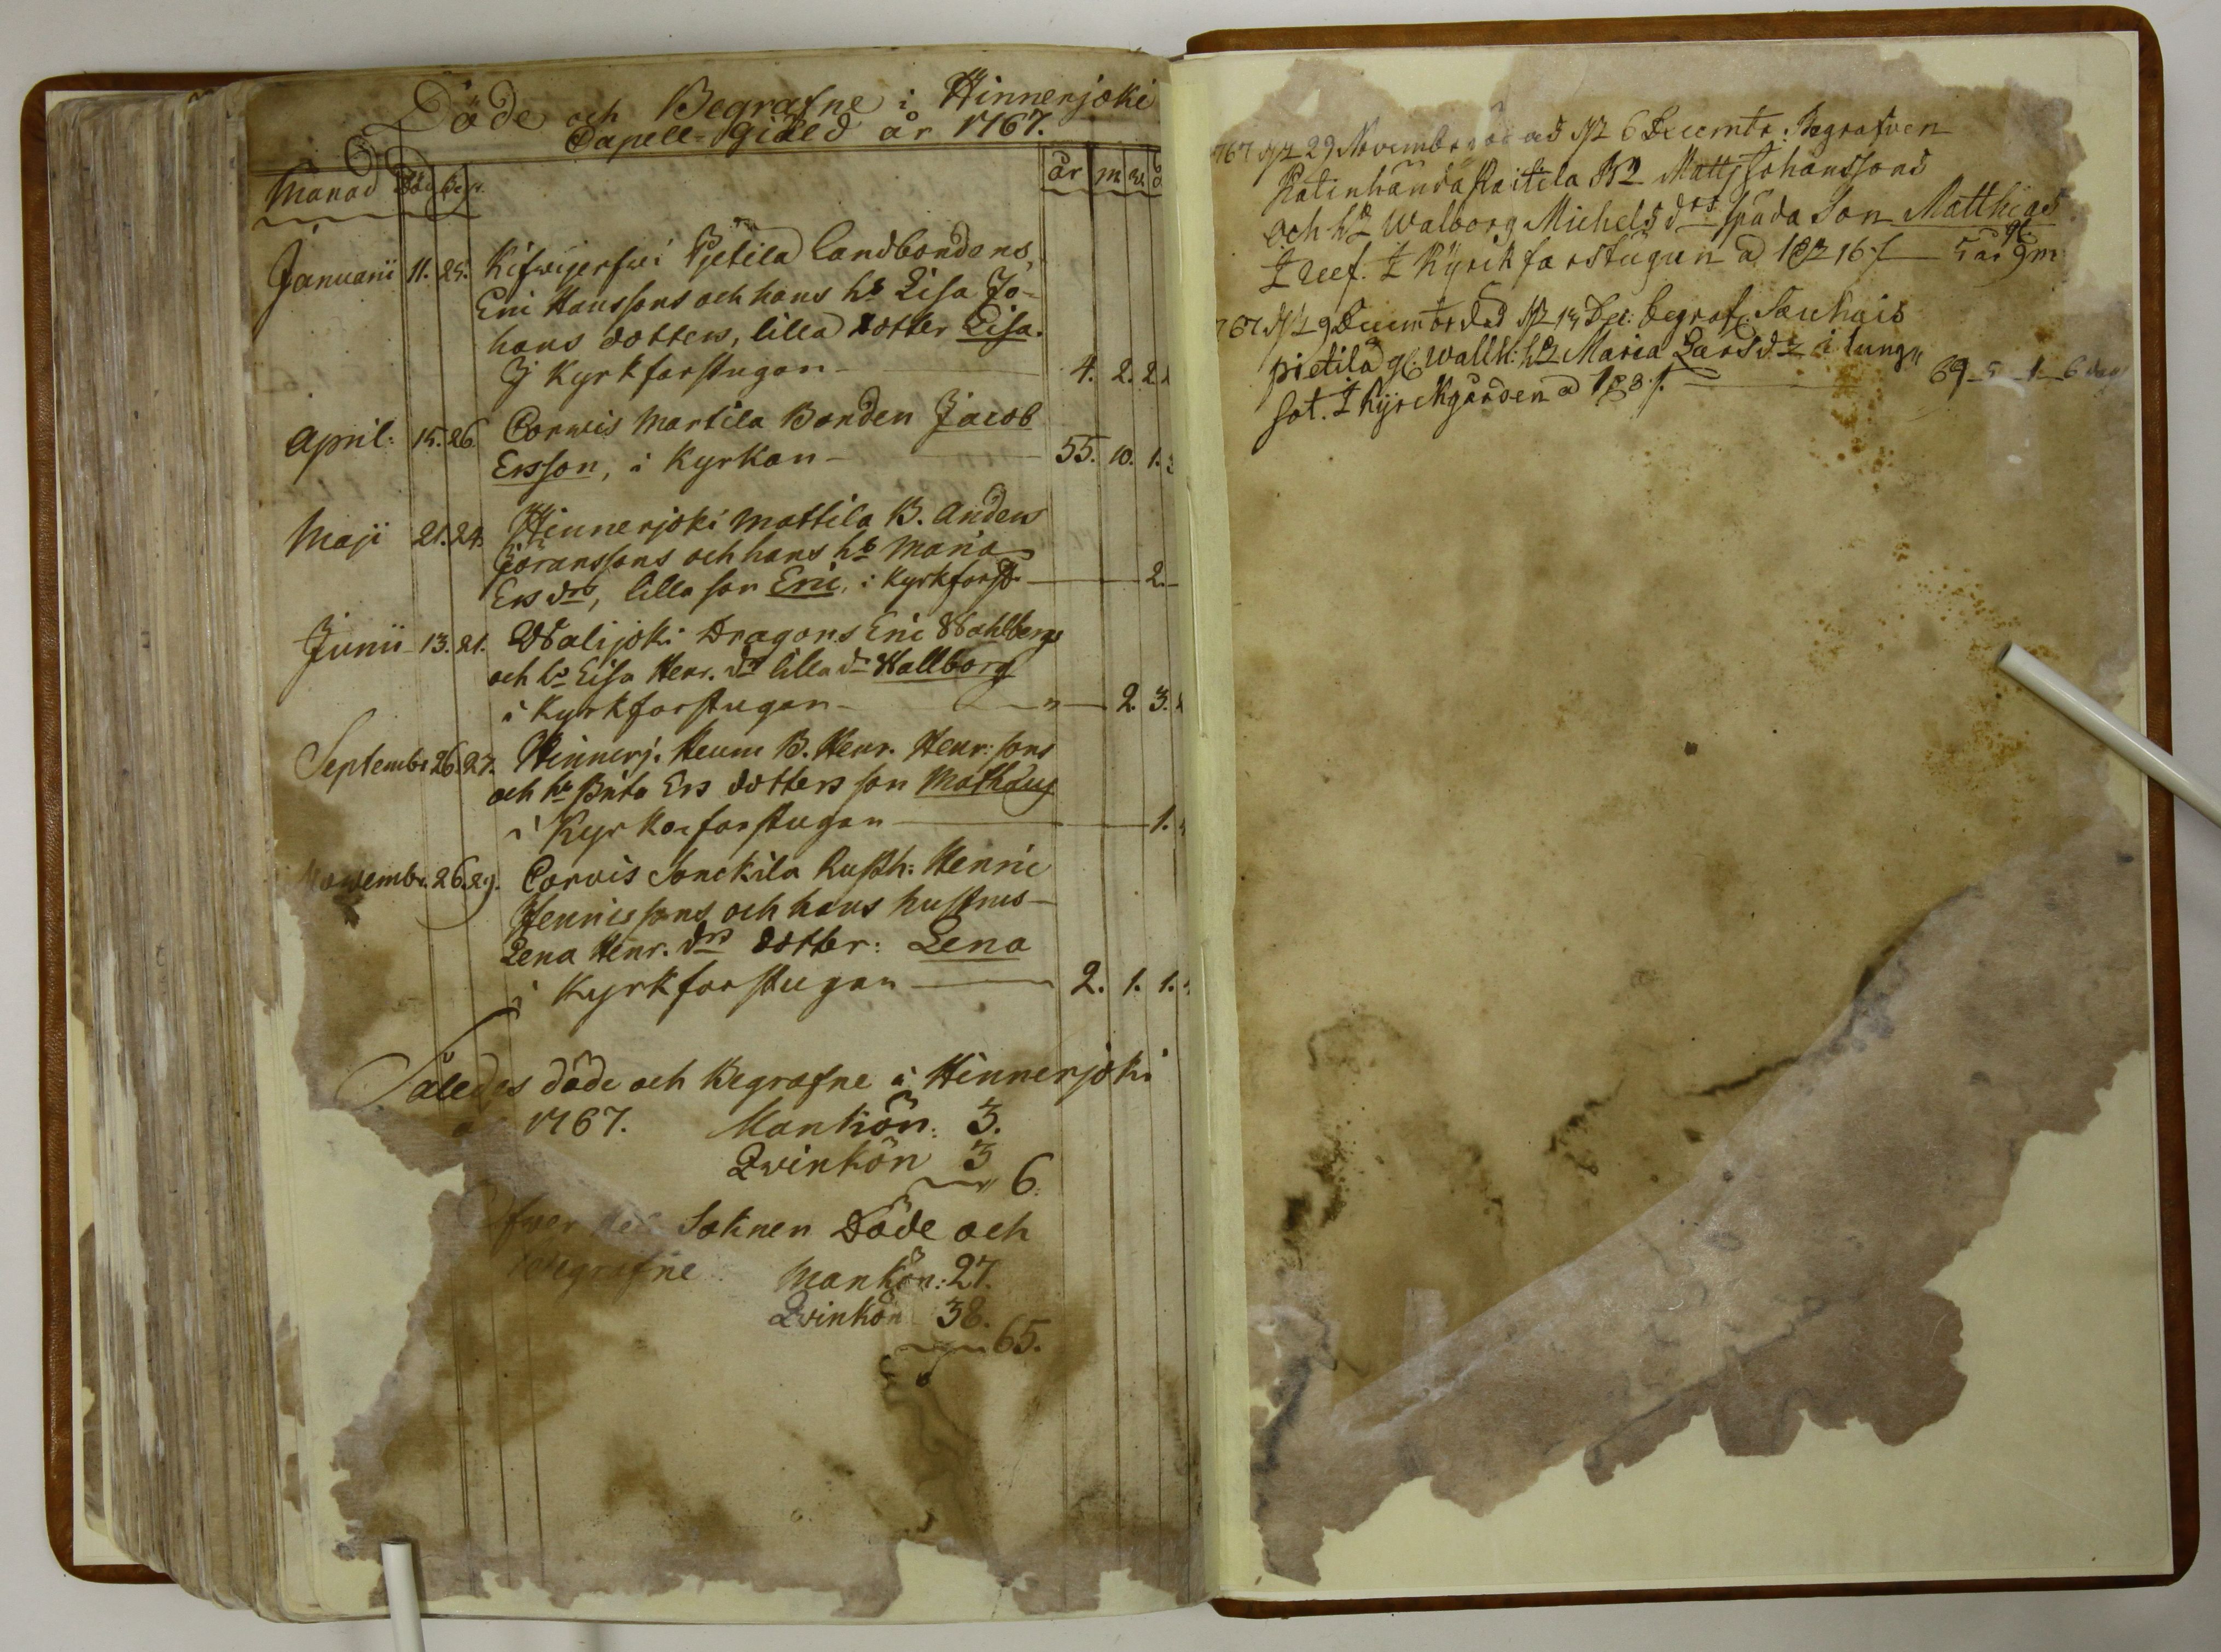 Döde och Begrafne i Hinnerjoki
Capell-gield år 1767.
Månad Död Begr. år m. w. d
Januarii 11. 25. Kifwijerfwi Pjetila Landbondens,
Eric Hanssons och hans hs Lisa Jo-
hans dotters, lilla dotter Lisa.
J Kyrkforstugan 4. 2. 2
April: 15. 26. Corwis Martila Bonden Jacob
Ersson, i Kyrkan 55. 10. 1.
Maji 21. 24. Hinnerjoki Mattila B. Anders
Göranssons och hans hs Maria
Ers drs, lilla son Eric, i Kyrkforst. 2.
Junii 13. 21. Walijoki Dragons Eric Wahlbergs
och hs Lisa Henr. dr lilla dr Wallborg
i Kyrkforstugan 2. 3.
Septembr. 26. 27. Hinnerj. Heum B. Henr. Henr:sons
och hs Brita Ers dotters son Mathæus
i Kyrkoforstugan 1.
Novembr. 26. 29. Corvis Sonckila Rusth: Henric
Henricssons och hans hustrus
Lena Henr. drs dotter: Lena
i Kyrkforstugan 2. 1. 1.
Således döde och Begrafne i Hinnerjoki
a 1767. Mankön: 3.
Qvinkön 3
6.
Öfwer hela Soknen Döde och
Begrafne Mankön: 27.
Qvinkön 38.
65.
767 29 November död 6 Decembr: Begrafven
Matts Johanssons
och hs Walborg Michels drs späda Son Matthias
I Kyrckforstugun 5 ar 9 m
767 9 Decembr död Dec: begraf.
pietila gl. Maria Lars dr i lung
sot. I Kyrckgården 69 5 1 6 dag